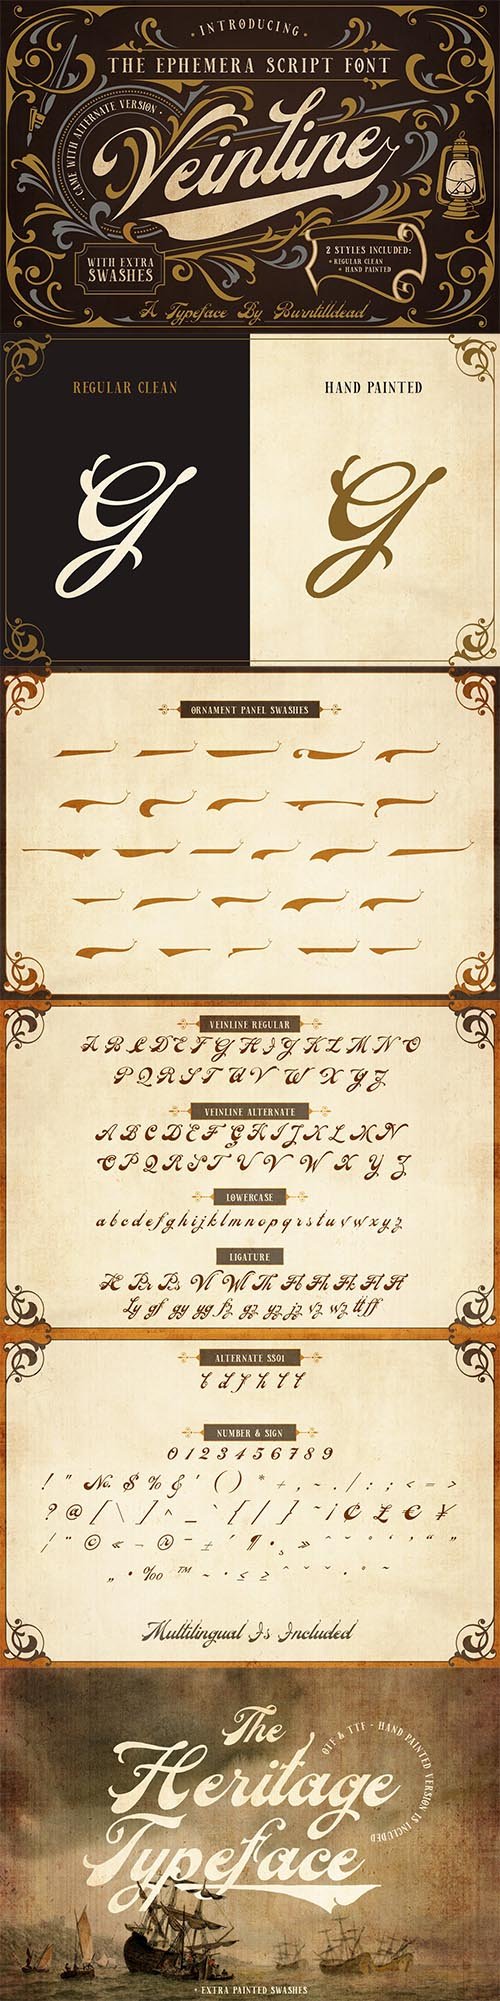 · INTRODUCING ·
THE EPHEMERA SCRIPT FONT
· CAME WITH ALTERNATE VERSION ·
Veinline
WITH EXTRA
SWASHES
2 STYLES INCLUDED:
+ REGULAR CLEAN
+ HAND PAINTED
A Typeface By Burntilldead
REGULAR CLEAN
HAND PAINTED
G
G
ORNAMENT PANEL SWASHES
VEINLINE REGULAR
A B C D E F G H I J K L M N O
P Q R S T U V W X Y Z
VEINLINE ALTERNATE
A B C D E F G H I J K L M N
O P Q R S T U V W X Y Z
LOWERCASE
a b c d e f g h i j k l m n o p q r s t u v w x y z
LIGATURE
ALTERNATE SS01
b d f h l t
NUMBER & SIGN
0 1 2 3 4 5 6 7 8 9
! " No. $ % & ' ( ) * + , - . / : ; < = >
? @ [ \ ] ^ _ ` { | } ~ ¡ ¢ £ € ¥
Multilingual Is Included
The
Heritage
Typeface
OTF & TTF - HAND PAINTED VERSION IS INCLUDED
+ EXTRA PAINTED SWASHES